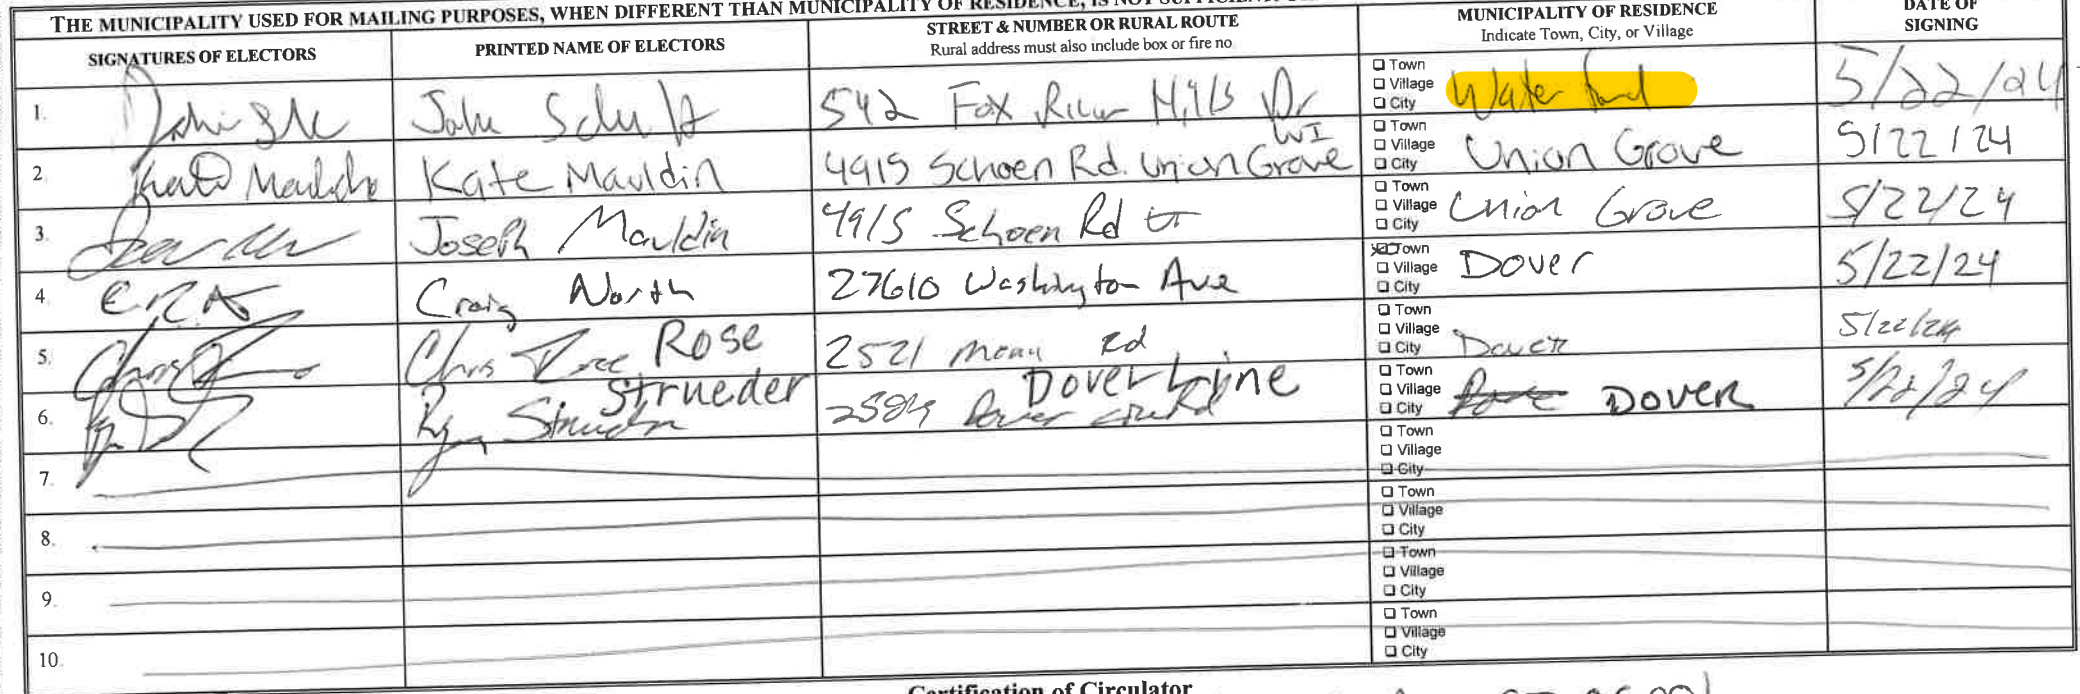 THE MUNICIPALITY USED FOR MAILING PURPOSES, WHEN DIFFERENT THAN MUNICIPALITY OF RESIDENCE, IS NOT
SIGNATURES OF ELECTORS
PRINTED NAME OF ELECTORS
STREET & NUMBER OR RURAL ROUTE
Rural address must also include box or fire no.
MUNICIPALITY OF RESIDENCE
Indicate Town, City, or Village
DATE OF
SIGNING
1. 542 Fox River Hills Dr ☐ Town ☐ Village ☐ City Waterford 5/22/24
2. Kate Mauldin Kate Mauldin 4915 Schoen Rd. Union Grove WI ☐ Town ☐ Village ☐ City Union Grove 5/22/24
3. Joseph Mauldin 4915 Schoen Rd ☐ Town ☐ Village ☐ City Union Grove 5/22/24
4. Craig North 27610 Washington Ave ☒ Town ☐ Village ☐ City Dover 5/22/24
5. Chris Rose Rose 2521 Rd ☐ Town ☐ Village ☐ City Dover 5/22/24
6. Ryan Strueder Strueder Dover Line Rd ☐ Town ☐ Village ☐ City DOVER 5/22/24
7. ☐ Town ☐ Village ☐ City
8. ☐ Town ☐ Village ☐ City
9. ☐ Town ☐ Village ☐ City
10. ☐ Town ☐ Village ☐ City
Certification of Circulator